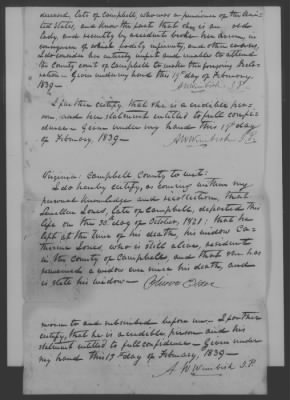 deceased, late of Campbell, who was a pensioner of the Uni-
ted States, and know the fact that this is an old
lady, and recently by accident broke her
consequence of which bodily infirmity, and other causes,
I do consider her entirely unfit and unable to attend
the County Court of Campbell to make the foregoing Decla-
ration – Given under my hand this 19th day of February
1839 –
A W Wimbish J.P.
I further certify, that she is a credible per-
son, and her statement entitled to full confi-
dence – Given under my hand this 19th day
of February, 1839 –
A W Wimbish J.P.
Virginia: Campbell County to wit:
I do hereby certify, as coming within my
personal knowledge and recollection, that
Jones, late of Campbell, departed this
life on the 30th day of October, 1821; that he
left at the time of his death, his widow Ca-
tharine Jones, who is still alive, resident
in the County of Campbell, and that she has
remained a widow ever since his death, and
is still his widow –
sworn to and subscribed before me – I further
certify, that he is a credible person and his
statement entitled to full confidence – Given under
my hand this 19th day of February, 1839 –
A W Wimbish J.P.